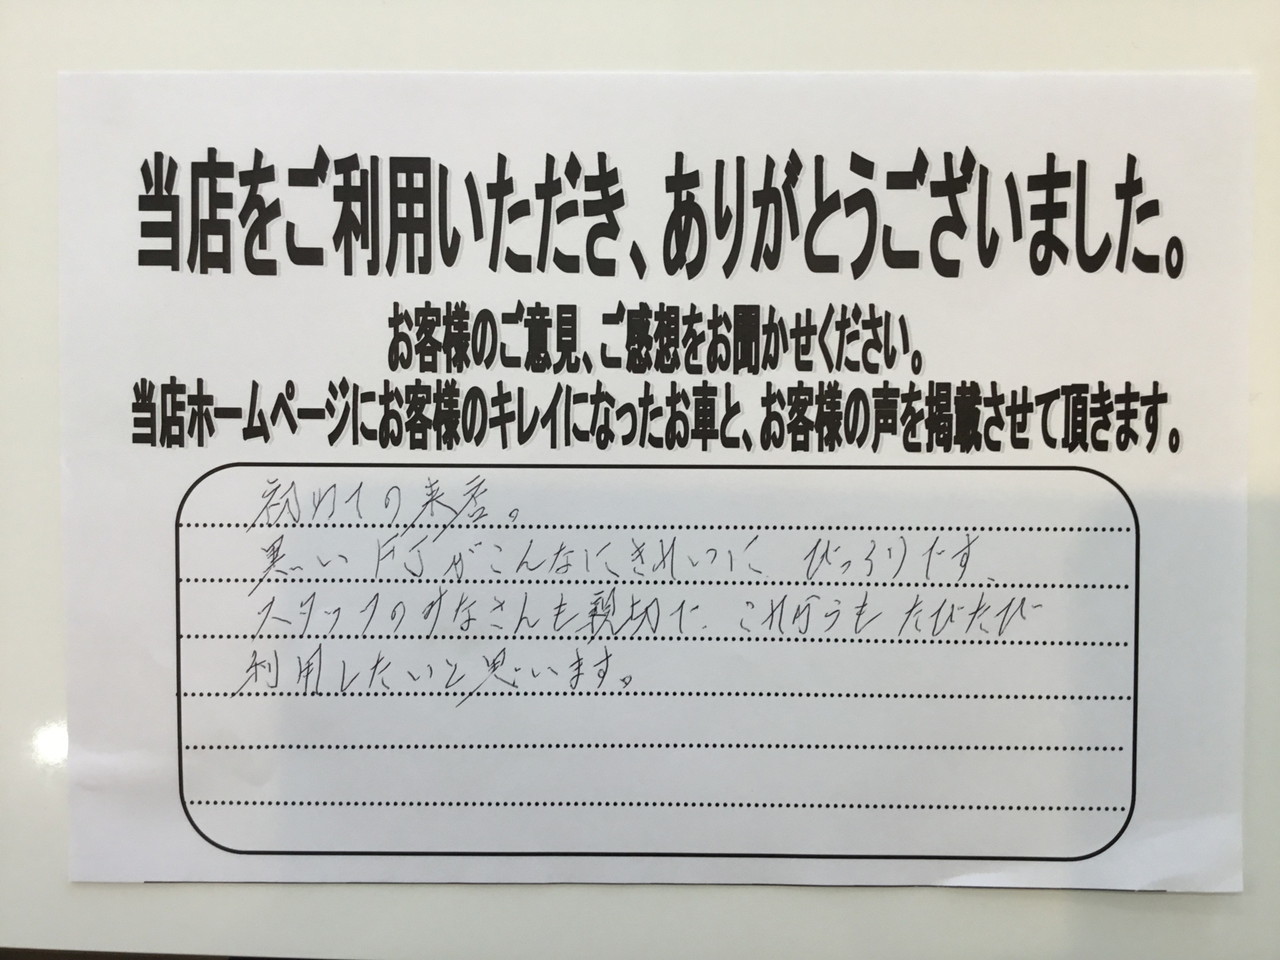 当店をご利用いただき、ありがとうございました。
お客様のご意見、ご感想をお聞かせください。
当店ホームページにお客様のキレイになったお車と、お客様の声を掲載させて頂きます。
初めての来店。
黒いFJがこんなにきれいに びっくりです、
スタッフのみなさんも親切で、これからも たびたび
利用したいと思います。